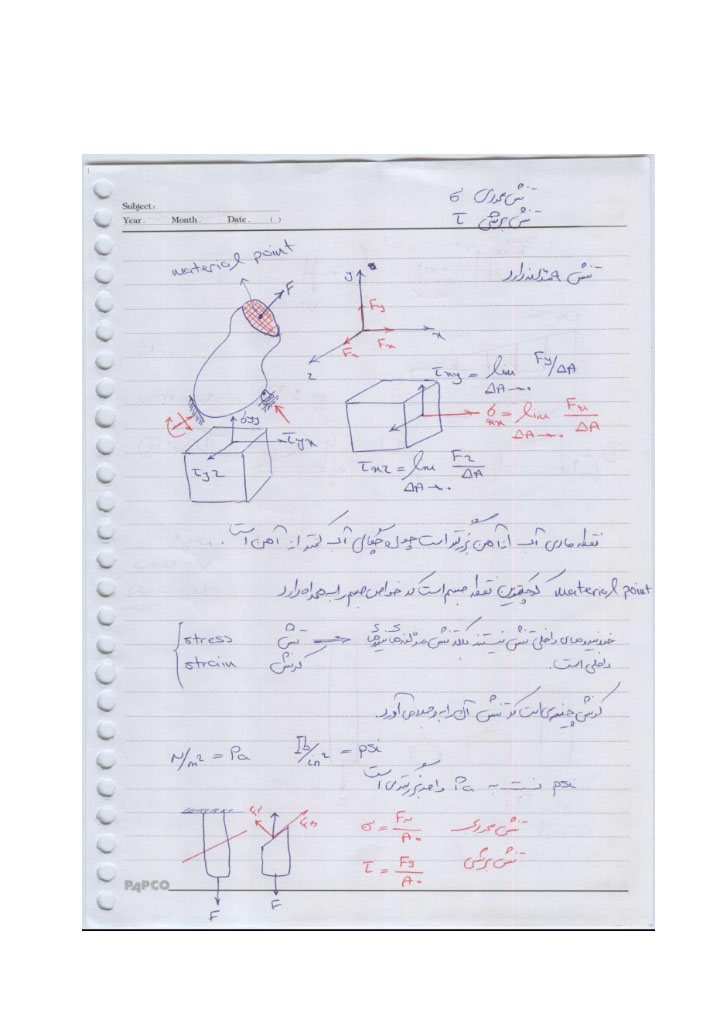 Subject:
Year. Month. Date. ( )
تنش عمودی σ
تنش برشی τ
material point
F
y
x
z
Fy
Fx
Fz
تنش
τxy = lim Fy/ΔA
ΔA→0
σxx = lim Fx/ΔA
ΔA→0
τxz = lim Fz/ΔA
ΔA→0
σyy
τyx
τyz
نقطه مادی آب از آهن بزرگتر است چون چگالی آب کمتر از آهن است.
material point کوچکترین نقطه جسم است که خواص جسم را به همراه دارد
stress تنش ⇐ خود نیروهای داخلی تنش نیستند بلکه تنش
strain کرنش داخلی است.
کرنش چیزی است که تنش آن را به وجود می آورد.
N/m² = Pa lb/in² = psi
psi نسبت به Pa واحد بزرگتری است
F
F
σ = Fx/A₀ تنش عمودی
τ = Fy/A₀ تنش برشی
PAPCO